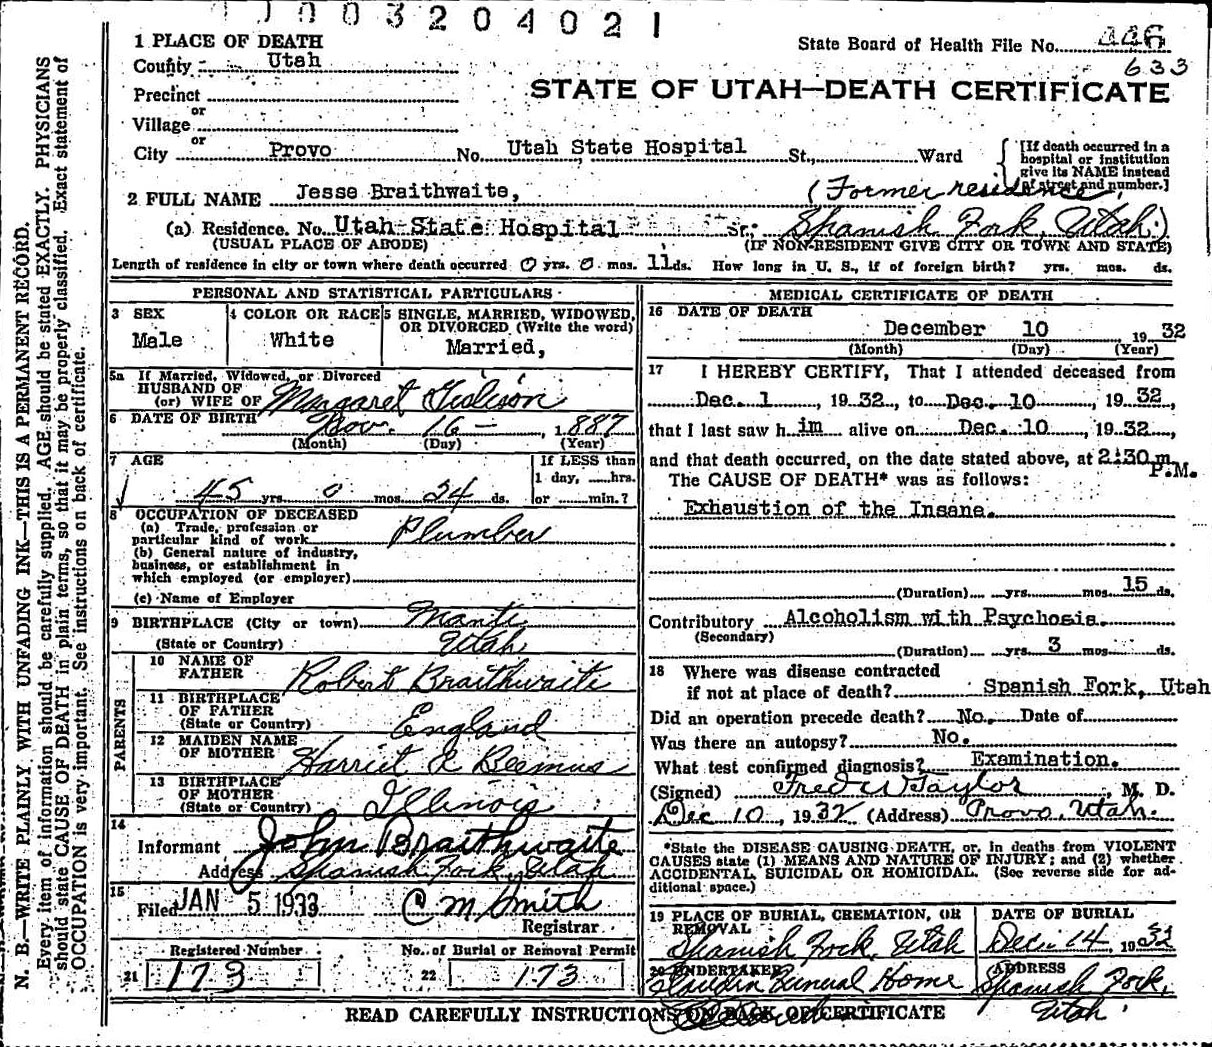 1003204021
1 PLACE OF DEATH
State Board of Health File No. 446
633
County Utah
STATE OF UTAH—DEATH CERTIFICATE
Precinct
or
Village
or
City Provo No. Utah State Hospital St., Ward
[If death occurred in a hospital or institution give its NAME instead of street and number.]
2 FULL NAME Jesse Braithwaite, (Former residence,
(a) Residence. No. Utah State Hospital St. Spanish Fork, Utah.)
(USUAL PLACE OF ABODE) (IF NON-RESIDENT GIVE CITY OR TOWN AND STATE)
Length of residence in city or town where death occurred 0 yrs. 0 mos. 11 ds. How long in U. S., if of foreign birth? yrs. mos. ds.
PERSONAL AND STATISTICAL PARTICULARS
3 SEX
Male
4 COLOR OR RACE
White
5 SINGLE, MARRIED, WIDOWED,
OR DIVORCED (Write the word)
Married,
5a If Married, Widowed, or Divorced
HUSBAND OF
(or) WIFE OF Margaret
6 DATE OF BIRTH Nov. 16 - , 1887
(Month) (Day) (Year)
7 AGE
45 yrs. 0 mos. 24 ds.
If LESS than
1 day, hrs.
or min.?
8 OCCUPATION OF DECEASED
(a) Trade, profession or
particular kind of work Plumber
(b) General nature of industry,
business, or establishment in
which employed (or employer)
(c) Name of Employer
9 BIRTHPLACE (City or town) Manti
(State or Country) Utah
PARENTS
10 NAME OF
FATHER Robert Braithwaite
11 BIRTHPLACE
OF FATHER
(State or Country) England
12 MAIDEN NAME
OF MOTHER Harriet A Beemus
13 BIRTHPLACE
OF MOTHER
(State or Country) Illinois
14
Informant John Braithwaite
Address Spanish Fork, Utah
15
Filed JAN 5 1933 C M Smith
Registrar
Registered Number
21 173
No. of Burial or Removal Permit
22 173
MEDICAL CERTIFICATE OF DEATH
16 DATE OF DEATH
December 10 1932
(Month) (Day) (Year)
17 I HEREBY CERTIFY, That I attended deceased from
Dec. 1, 1932, to Dec. 10, 1932,
that I last saw h im alive on Dec. 10, 1932,
and that death occurred, on the date stated above, at 2:30 m.
P.M.
The CAUSE OF DEATH* was as follows:
Exhaustion of the Insane.
(Duration) yrs. mos. 15 ds.
Contributory Alcoholism with Psychosis.
(Secondary)
(Duration) yrs. 3 mos. ds.
18 Where was disease contracted
if not at place of death? Spanish Fork, Utah
Did an operation precede death? No. Date of
Was there an autopsy? No.
What test confirmed diagnosis? Examination.
(Signed) Fred W Taylor, M. D.
Dec 10, 1932 (Address) Provo, Utah.
*State the DISEASE CAUSING DEATH, or, in deaths from VIOLENT
CAUSES state (1) MEANS AND NATURE OF INJURY; and (2) whether
ACCIDENTAL, SUICIDAL OR HOMICIDAL. (See reverse side for ad-
ditional space.)
19 PLACE OF BURIAL, CREMATION, OR
REMOVAL
Spanish Fork, Utah
DATE OF BURIAL
Dec. 14, 1932
20 UNDERTAKER
Funeral Home
ADDRESS
Spanish Fork,
Utah
READ CAREFULLY INSTRUCTIONS ON BACK OF CERTIFICATE
N. B.—WRITE PLAINLY WITH UNFADING INK—THIS IS A PERMANENT RECORD.
Every item of information should be carefully supplied. AGE should be stated EXACTLY. PHYSICIANS
should state CAUSE OF DEATH in plain terms, so that it may be properly classified. Exact statement of
OCCUPATION is very important. See instructions on back of certificate.